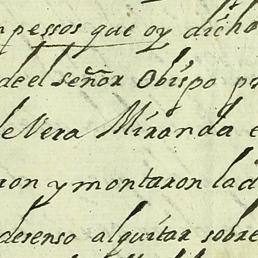 pessos que oy dicho
de el señor Obispo pr
de Vera Miranda e
ron y montaron la d
desenso alquitar sobre